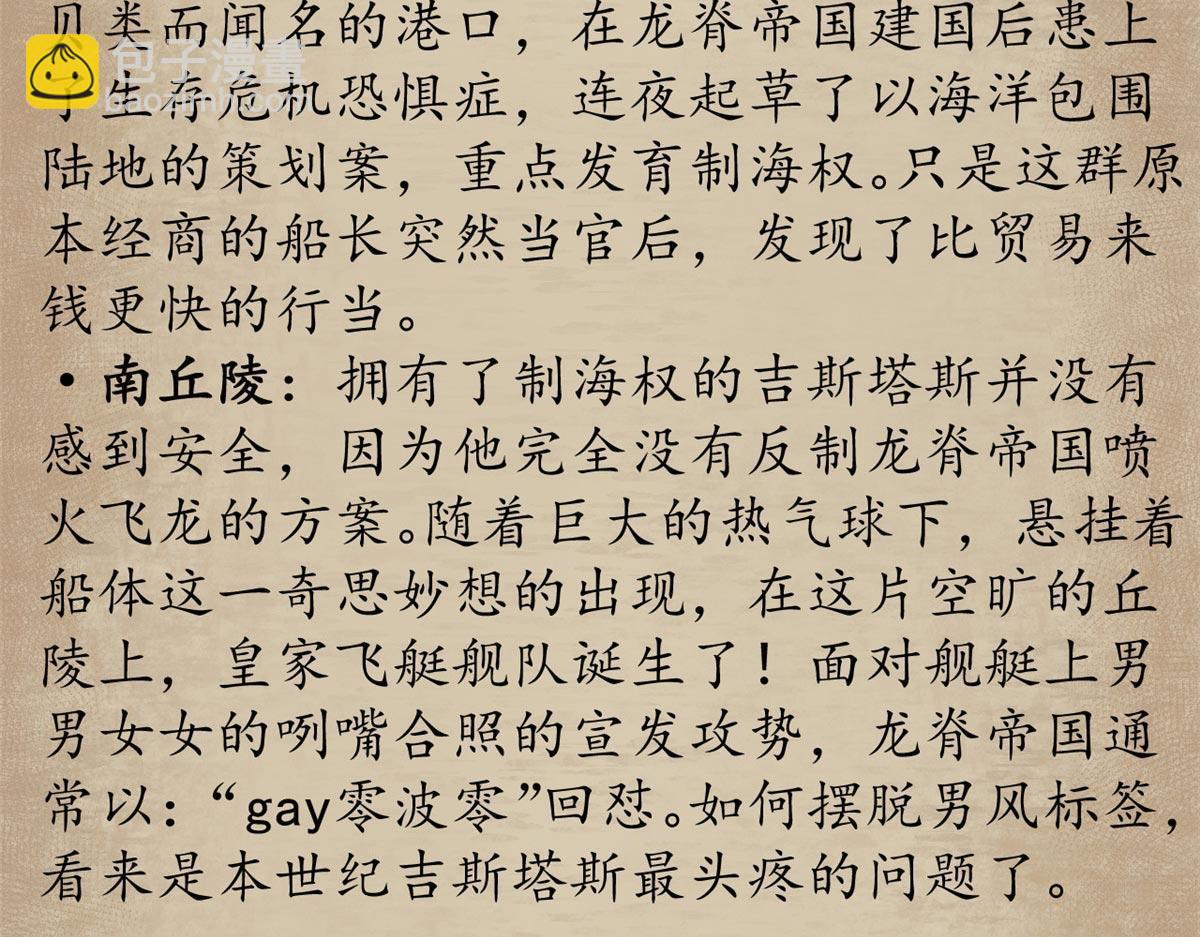 贝类而闻名的港口，在龙脊帝国建国后患上
包子漫畫
baozimh.com
了生存危机恐惧症，连夜起草了以海洋包围
陆地的策划案，重点发育制海权。只是这群原
本经商的船长突然当官后，发现了比贸易来
钱更快的行当。
·南丘陵：拥有了制海权的吉斯塔斯并没有
感到安全，因为他完全没有反制龙脊帝国喷
火飞龙的方案。随着巨大的热气球下，悬挂着
船体这一奇思妙想的出现，在这片空旷的丘
陵上，皇家飞艇舰队诞生了！面对舰艇上男
男女女的咧嘴合照的宣发攻势，龙脊帝国通
常以：“gay零波零”回怼。如何摆脱男风标签，
看来是本世纪吉斯塔斯最头疼的问题了。